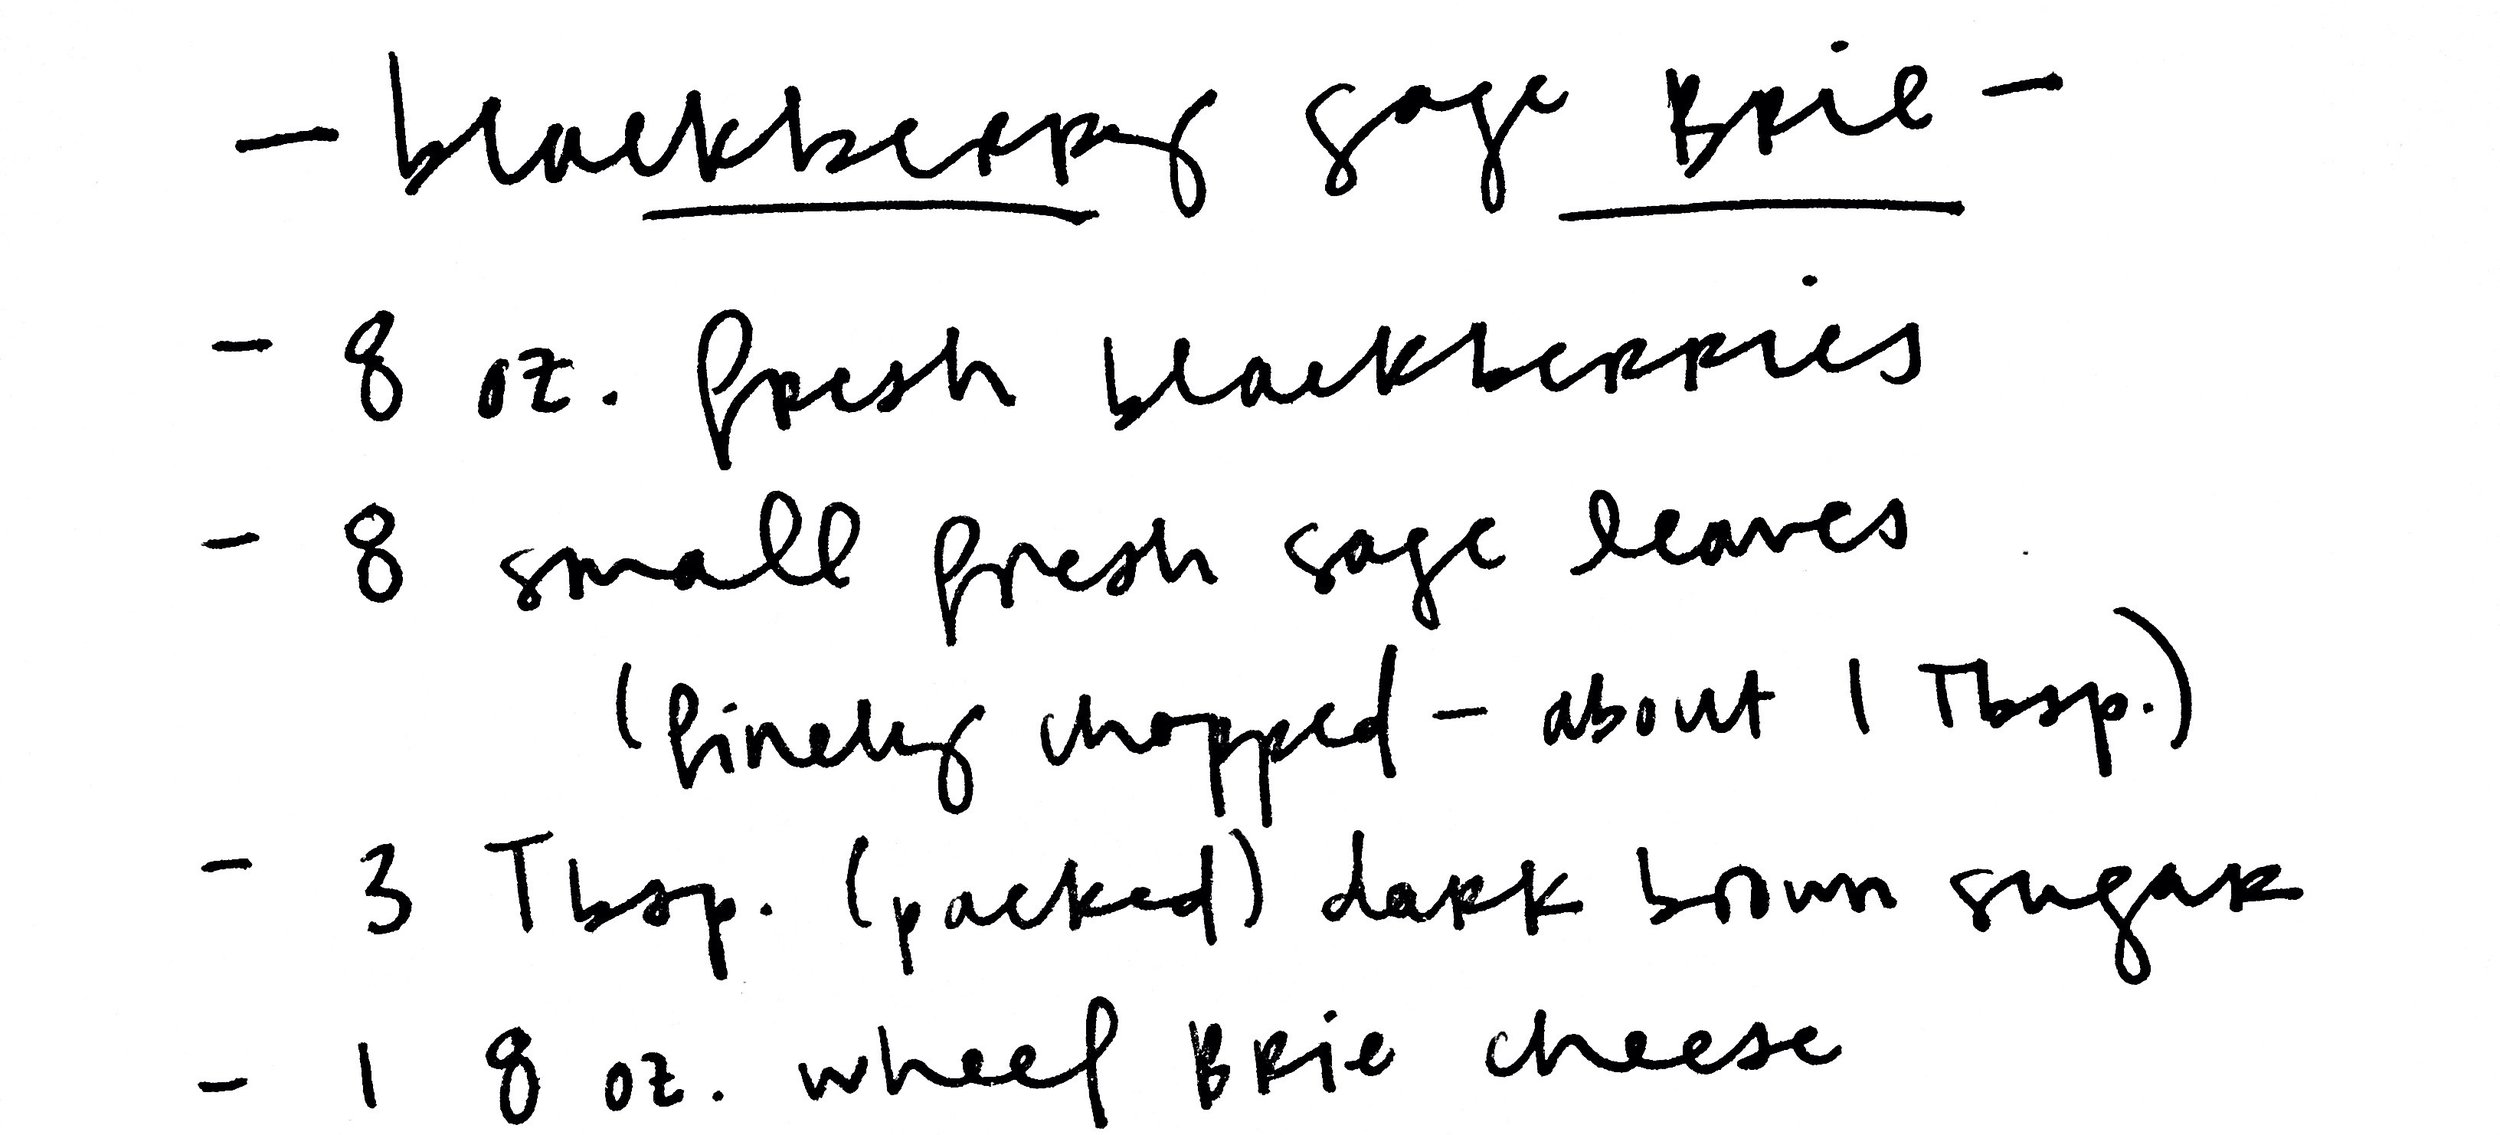 - blackberry sage Brie -
- 8 oz. fresh blackberries
- 8 small fresh sage leaves
(finely chopped - about 1 Tbsp.)
- 3 Tbsp. (packed) dark brown sugar
- 1 8 oz. wheel Brie cheese